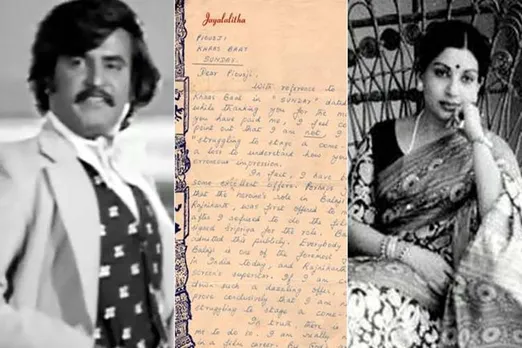 Jayalalitha
PIOUSJI
KHAAS BAAT
SUNDAY.
Dear Piousji,
With reference to
Khaas Baat in "SUNDAY" dated
while thanking you for the
you have paid me, I feel
point out that I am not
"struggling to stage a come
a loss to understand how you
erroneous impression.
In fact, I have
some excellent offers. Perhaps
that the heroine's role in Balaji
Rajnikanth, was first offered to
after I refused to do the film
signed Sripriya for the role.
admitted this publicly. Everybody
Balaji is one of the foremost
in India today, and Rajnikanth
screen's superstar. If I am
down such a dazzling offer,
prove conclusively that I am
struggling to stage a come
In truth there is
me to do so. I am really
in a film career. By